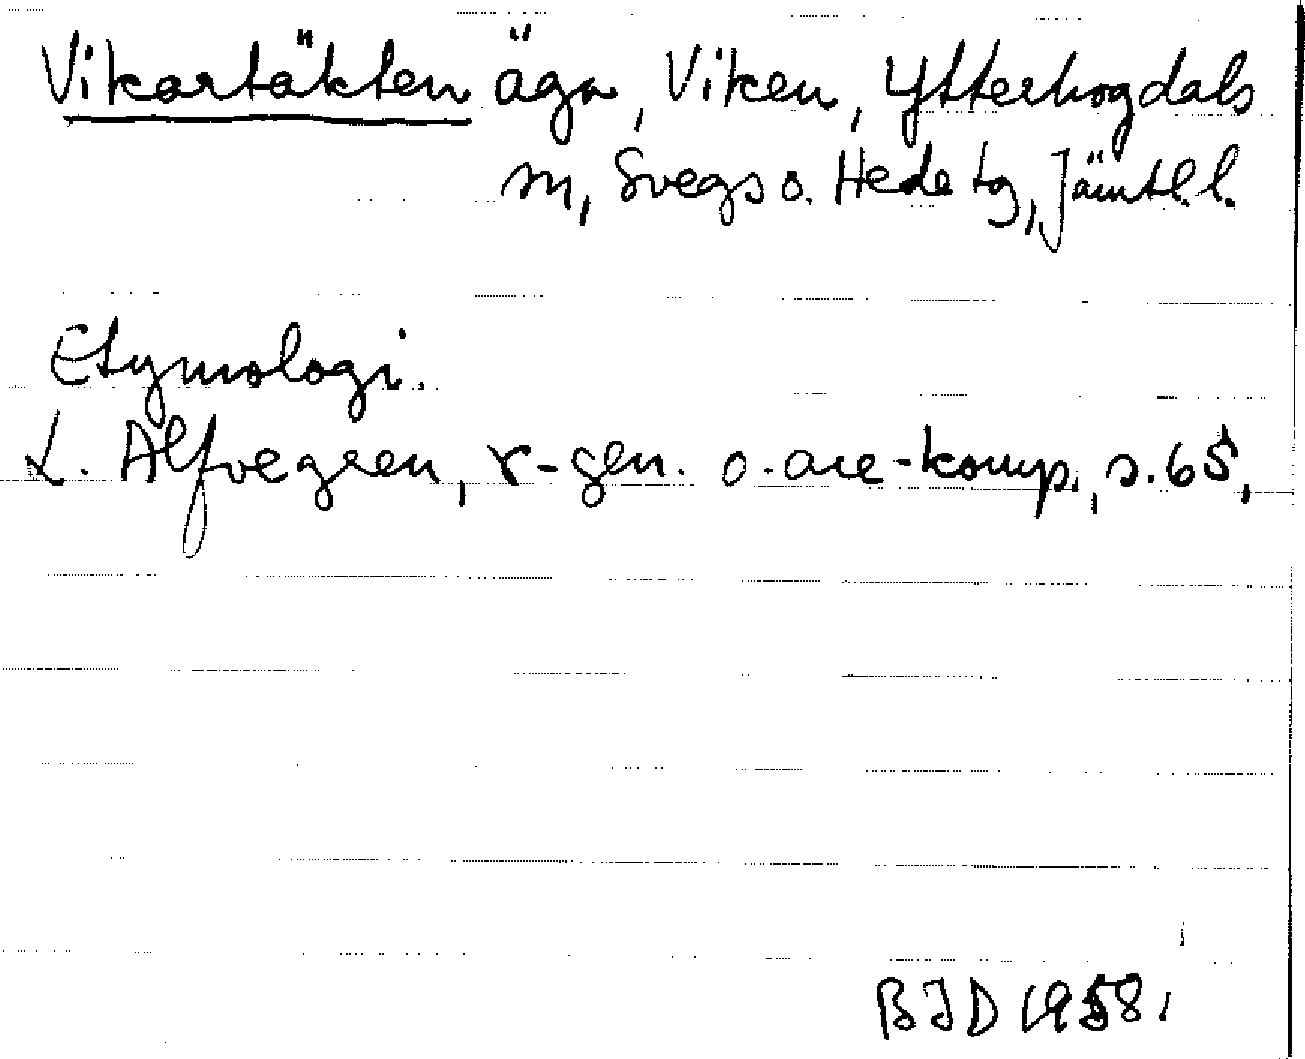 Vikartäkten äga, Viken, Ytterhogdals
sn, Svegs o. Hede tg, Jämtl. l.
Etymologi.
L. Alfvegren, r-gen. o. are-komp., s. 65,
BID 1958.